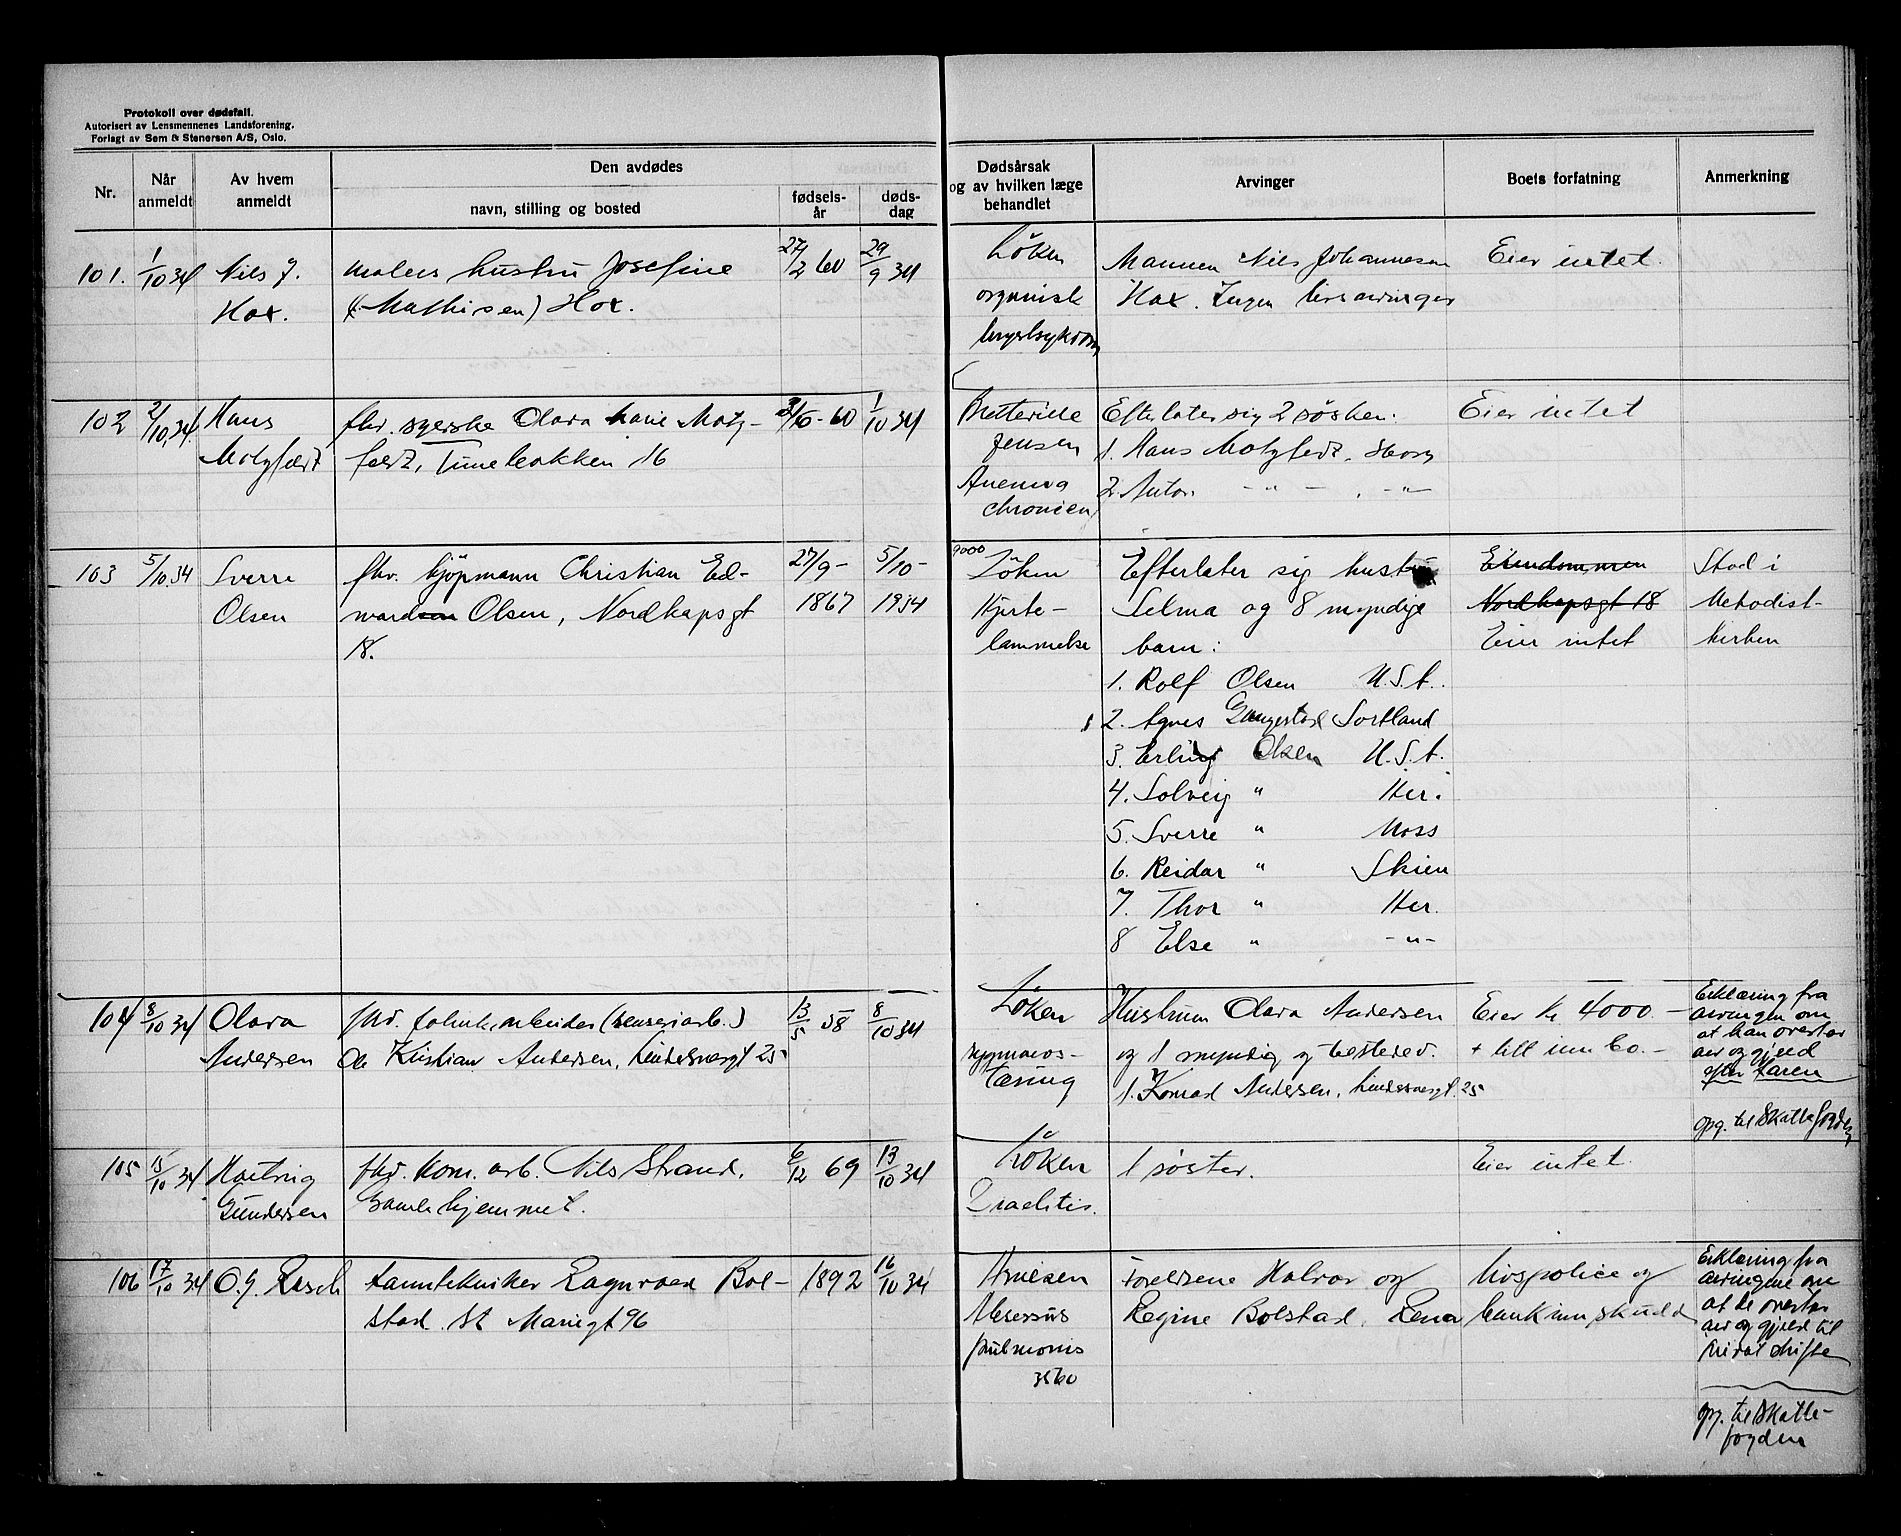 Protokoll over dødsfall.
Autorisert av Lensmennenes Landsforening.
Forlagt av Sem & Stenersen A/S, Oslo.
Nr.
Når
anmeldt
Av hvem
anmeldt
Den avdødes
navn, stilling og bosted
fødsels-
år
døds-
dag
Dødsårsak
og av hvilken læge
behandlet
Arvinger
Boets forfatning
Anmerkning
101.
1/10 34
Nils J.
Hox.
malers hustru Josefine
(Mathisen) Hox.
27/2 60
29/9 34
Löken
organisk
Mannen Nils Johannesen
Hox. Ingen livsarvinger
Eier intet.
102
2/10.34
Hans
Motzfeldt
fhv. syerske Clara Marie Motz-
feldt, Tunebakken 16
/6 - 60
1/10 34
Jensen
Anemia
Efterlater sig 2 søsken:
1. Hans Motzfeldt, Horn
2. Anton - " - , - " -
Eier intet
103
5/10.34
Sverre
Olsen
fhv. kjöpmann Christian Ed-
ward Olsen, Nordkapsgt
18.
27/9 -
1867
5/10 -
1934
9000
Löken
Hjerte-
lammelse
Efterlater sig hustru
Selma og 8 myndige
barn:
1. Rolf Olsen U.S.A.
2. Agnes Gangestad Sortland
3. Erling Olsen U.S.A.
4. Solveig " Her.
5. Sverre " Moss
6. Reidar " Skien
7. Thor " Her.
8 Else " - " -
Eiendommen
Nordkapsgt 18
Eier intet
Sted i
Metodist-
kirken
104
8/10 34
Clara
Andersen
fhv. fabrikarbeider (renseriarb.)
Ole Kristian Andersen, Lindesnesgt 25
13/5 58
8/10 34
Löken
tæring
Hustrum Clara Andersen
og 1 myndig
1. Konrad Andersen, Lindesnesgt. 25
Eier kr 4000. -
+ litt innbo. -
Erklæring fra
arvingen om
at han overtar
arv og gjeld
efter faren
opg. til Skattefogden
105
15/10 34
Gundersen
fhv. kom. arb. Nils Strand.
Gamlehjemmet.
6/12 69
13/10 34
Löken
1 søster.
Eier intet.
106
17/10 34
O. J. Resch
tanntekniker Ragnvald Bol-
stad. St Mariegt 96
1892
16/10 34
Arnesen
Absessus
pulmonis
3560
Foreldrene Halvor og
Regine Bolstad, Rena
livspolice og
bankinnskudd
Erklæring fra
arvingene om
at de overtar
arv og gjeld til
privat skifte
opg. til Skatte-
fogden